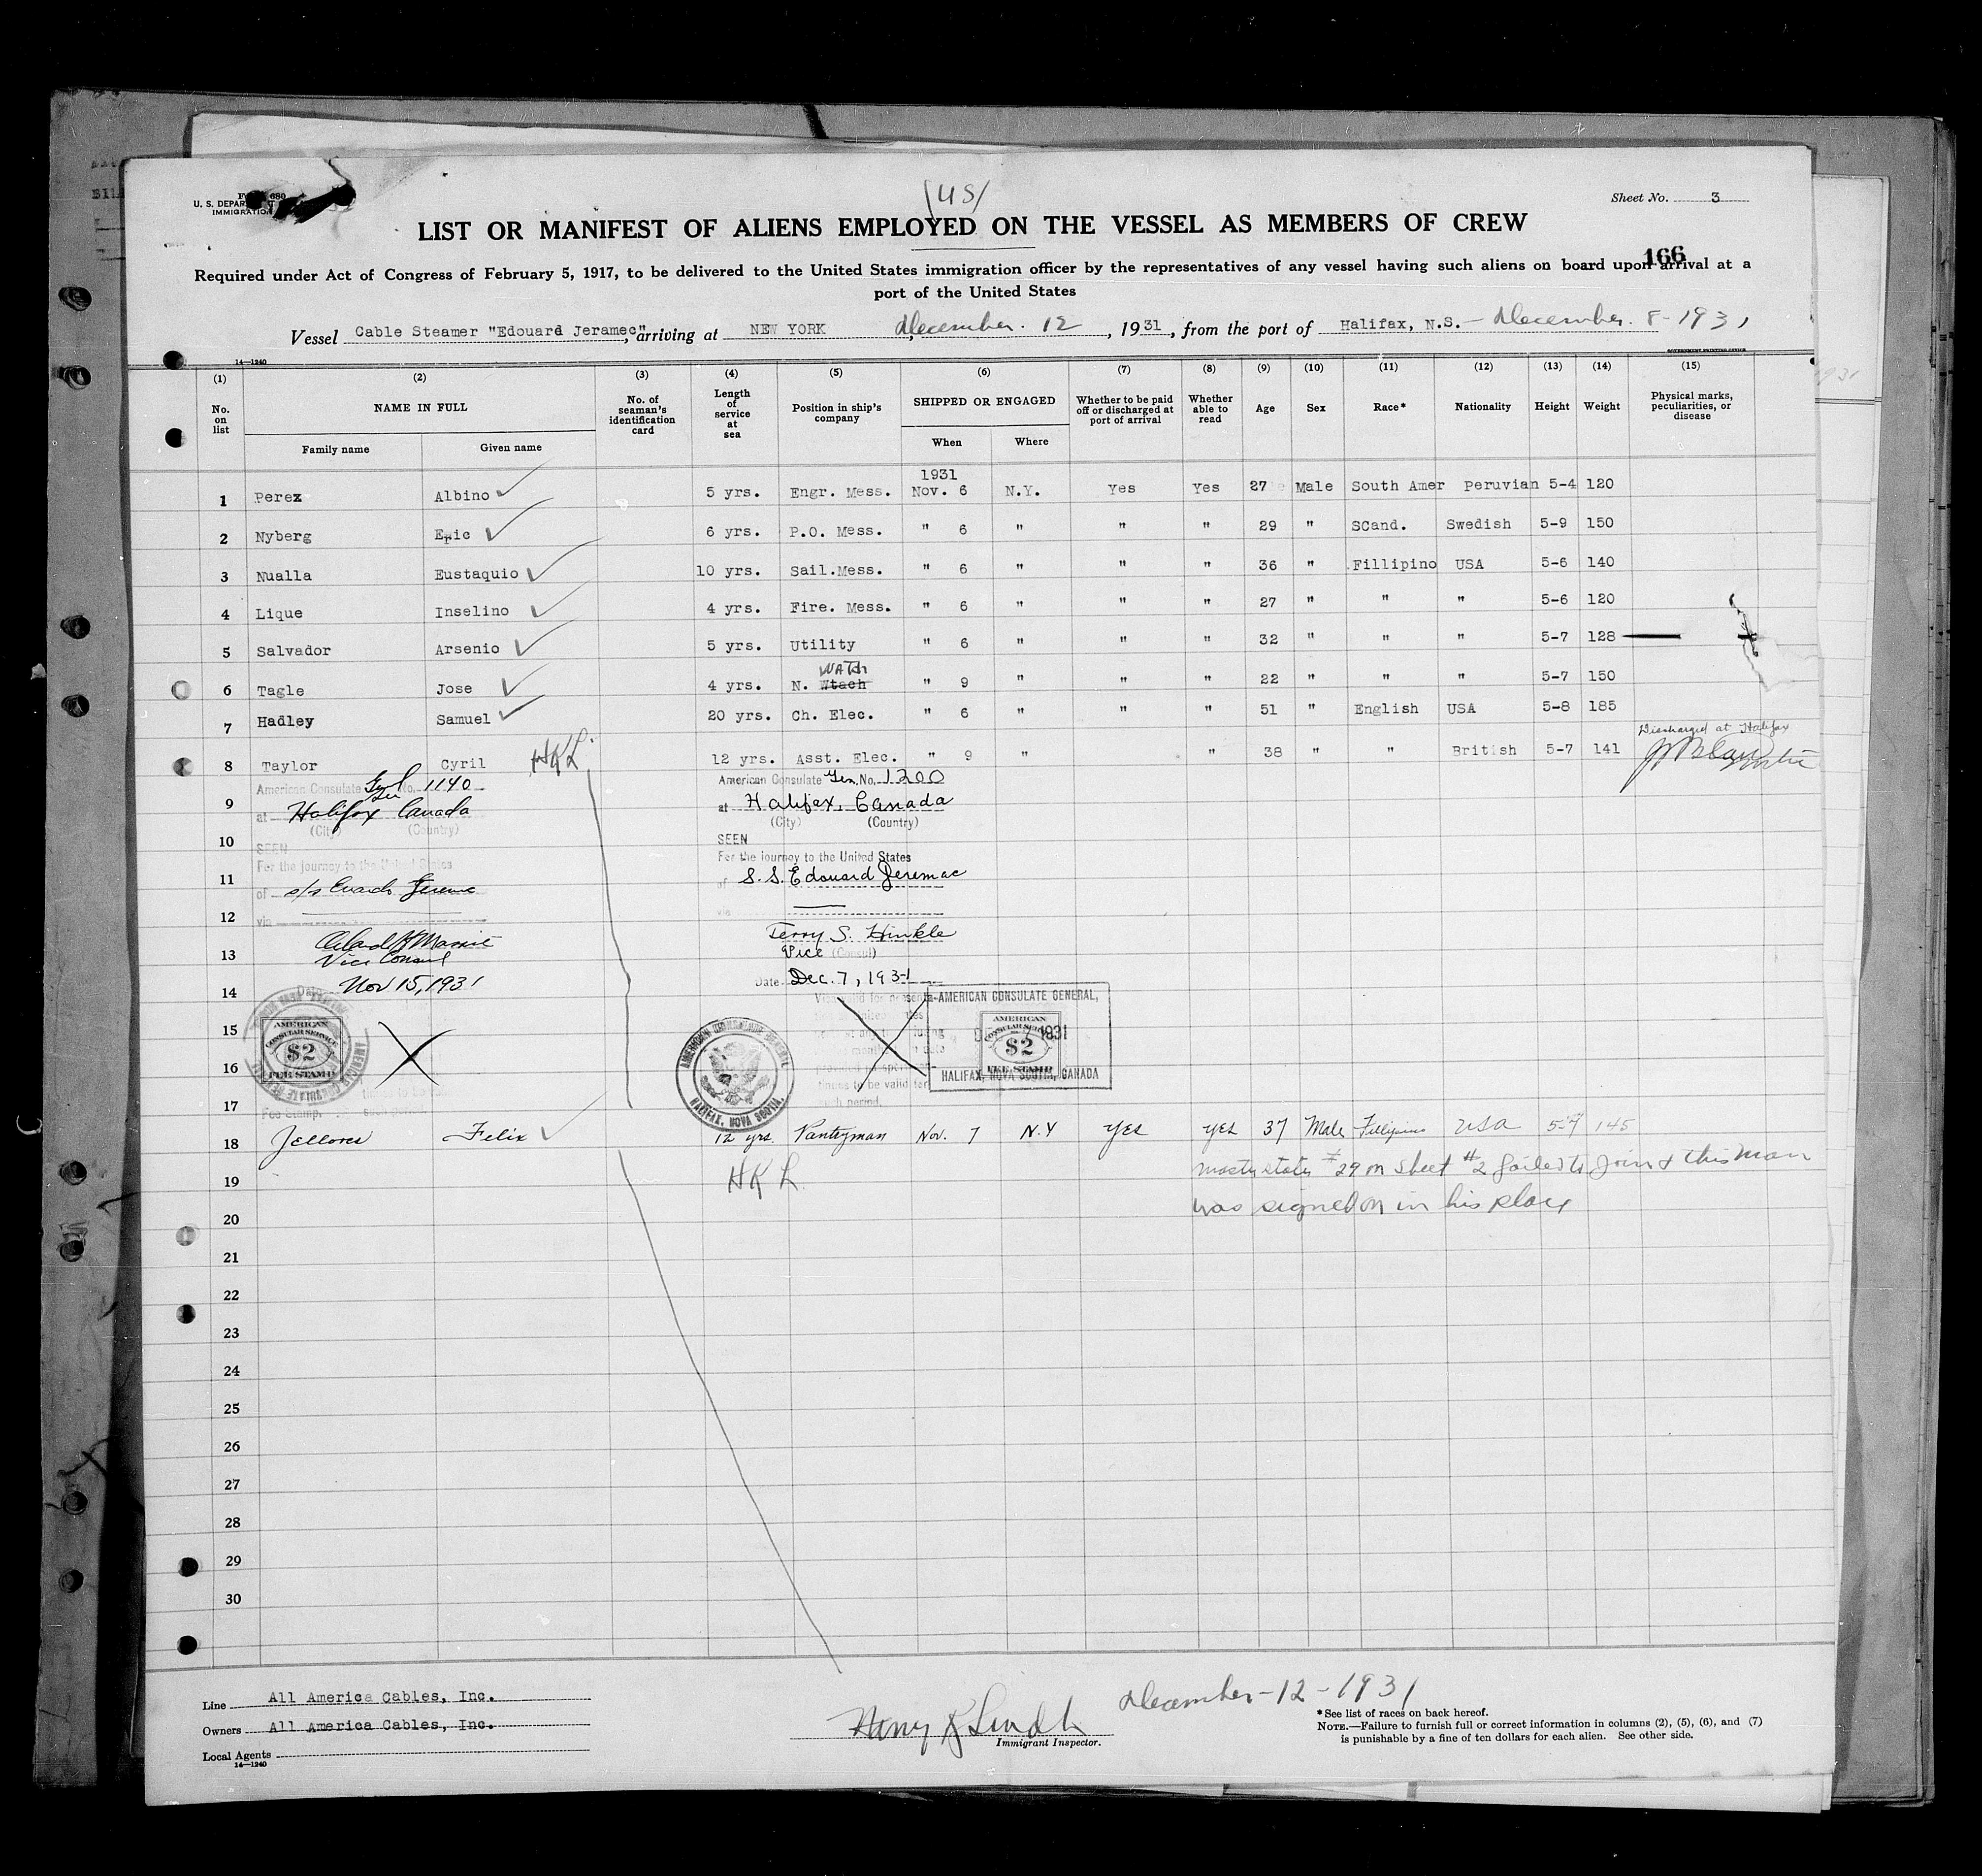 (US)
Sheet No. 3
U. S. DEPAR
IMMIGRATION
LIST OR MANIFEST OF ALIENS EMPLOYED ON THE VESSEL AS MEMBERS OF CREW
166
Required under Act of Congress of February 5, 1917, to be delivered to the United States immigration officer by the representatives of any vessel having such aliens on board upon arrival at a
port of the United States
Vessel Cable Steamer "Edouard Jeramec", arriving at NEW YORK December. 12, 1931, from the port of Halifax, N.S. - December. 8-1931
14—1240
GOVERNMENT PRINTING OFFICE
(1) (2) (3) (4) (5) (6) (7) (8) (9) (10) (11) (12) (13) (14) (15)
No. on list NAME IN FULL Family name Given name No. of seaman's identification card Length of service at sea Position in ship's company SHIPPED OR ENGAGED When Where Whether to be paid off or discharged at port of arrival Whether able to read Age Sex Race* Nationality Height Weight Physical marks, peculiarities, or disease
1931
1 Perez Albino 5 yrs. Engr. Mess. Nov. 6 N.Y. Yes Yes 27 Male South Amer Peruvian 5-4 120
2 Nyberg Eric 6 yrs. P.O. Mess. " 6 " " " 29 " SCand. Swedish 5-9 150
3 Nualla Eustaquio 10 yrs. Sail.Mess. " 6 " " " 36 " Fillipino USA 5-6 140
4 Lique Inselino 4 yrs. Fire. Mess. " 6 " " " 27 " " " 5-6 120
5 Salvador Arsenio 5 yrs. Utility " 6 " " " 32 " " " 5-7 128
WATCH
6 Tagle Jose 4 yrs. N. Wtach " 9 " " " 22 " " " 5-7 150
7 Hadley Samuel 20 yrs. Ch. Elec. " 6 " " " 51 " English USA 5-8 185
Discharged at Halifax
8 Taylor Cyril HKL 12 yrs. Asst. Elec. " 9 " " 38 " " British 5-7 141
American Consulate Genl No. 1140
American Consulate Gen. No. 1200
9 at Halifax Canada
at Halifax, Canada
(City) (Country)
(City) (Country)
10 SEEN
SEEN
For the journey to the United States
For the journey to the United States
11 of s/s Jerame
of S.S. Edouard Jeremac
12 via
via
13 Massie
Vice Consul
Terry S. Hinkle
Vice (Consul)
14 Nov 15, 1931
Date Dec. 7, 1931
Date
15
16
17
AMERICAN CONSULAR SERVICE $2 FEE STAMP
Fee Stamp.
AMERICAN CONSULATE GENERAL HALIFAX, NOVA SCOTIA.
AMERICAN CONSULATE GENERAL,
1931
AMERICAN CONSULAR SERVICE $2 FEE STAMP
HALIFAX, NOVA SCOTIA, CANADA
tinues to be valid for
such period.
18 Jellores Felix 12 yrs. Pantryman Nov. 7 N.Y YES YES 37 Male Fillipino USA 5-7 145
19 HKL
Master states #29 on sheet #2 failed to join & this man
was signed on in his place
20
21
22
23
24
25
26
27
28
29
30
Line All America Cables, Inc.
Owners All America Cables, Inc.
Local Agents
14—1240
December-12-1931
Immigrant Inspector.
* See list of races on back hereof.
NOTE.—Failure to furnish full or correct information in columns (2), (5), (6), and (7)
is punishable by a fine of ten dollars for each alien. See other side.